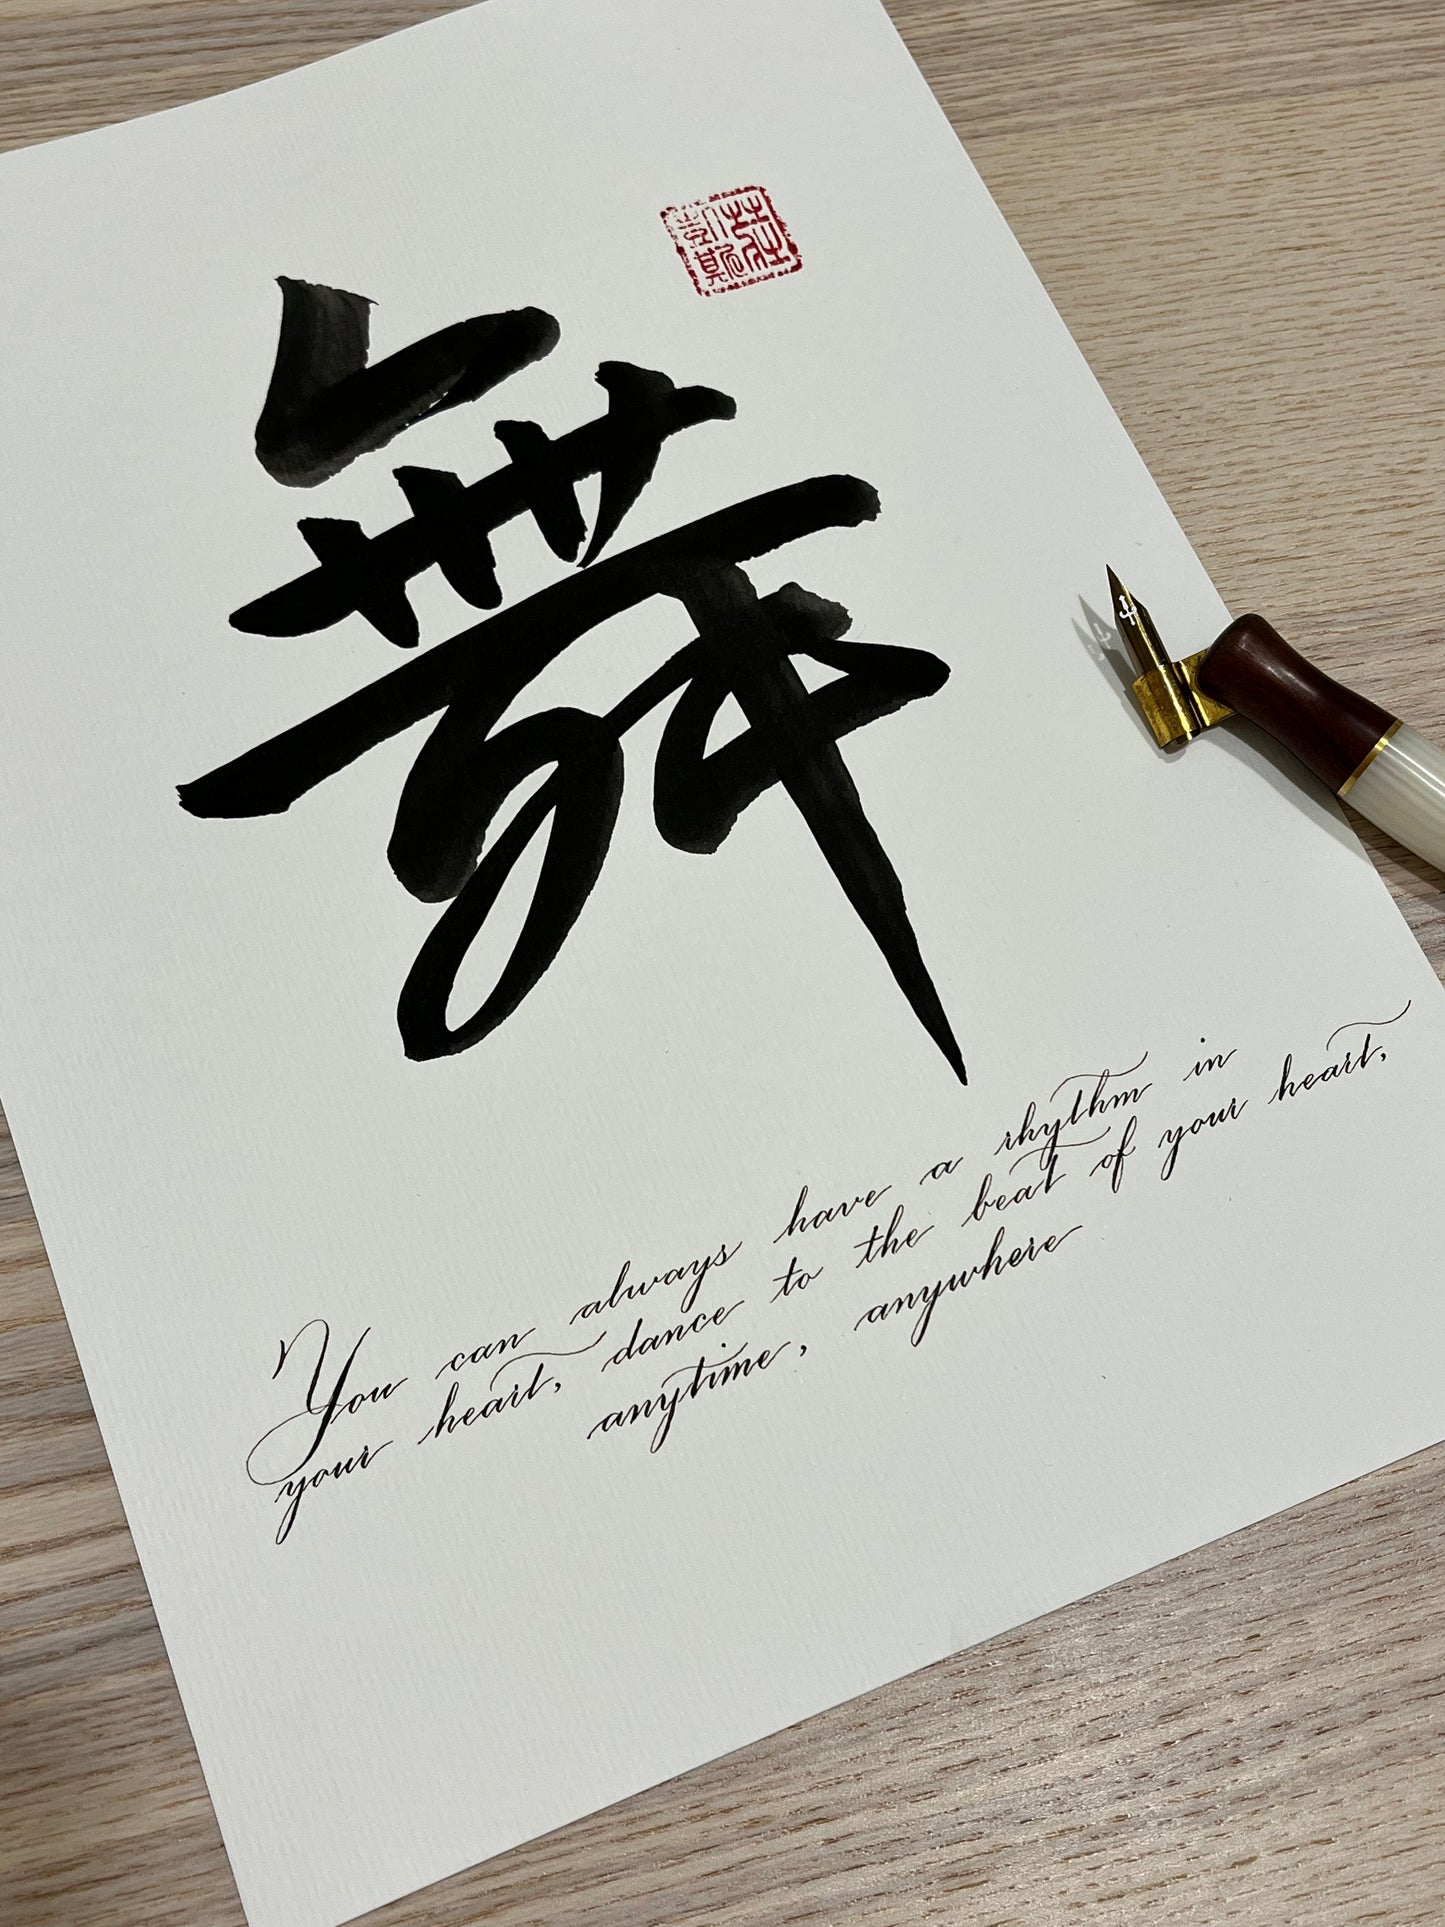 舞
You can always have a rhythm in
your heart, dance to the beat of your heart,
anytime, anywhere